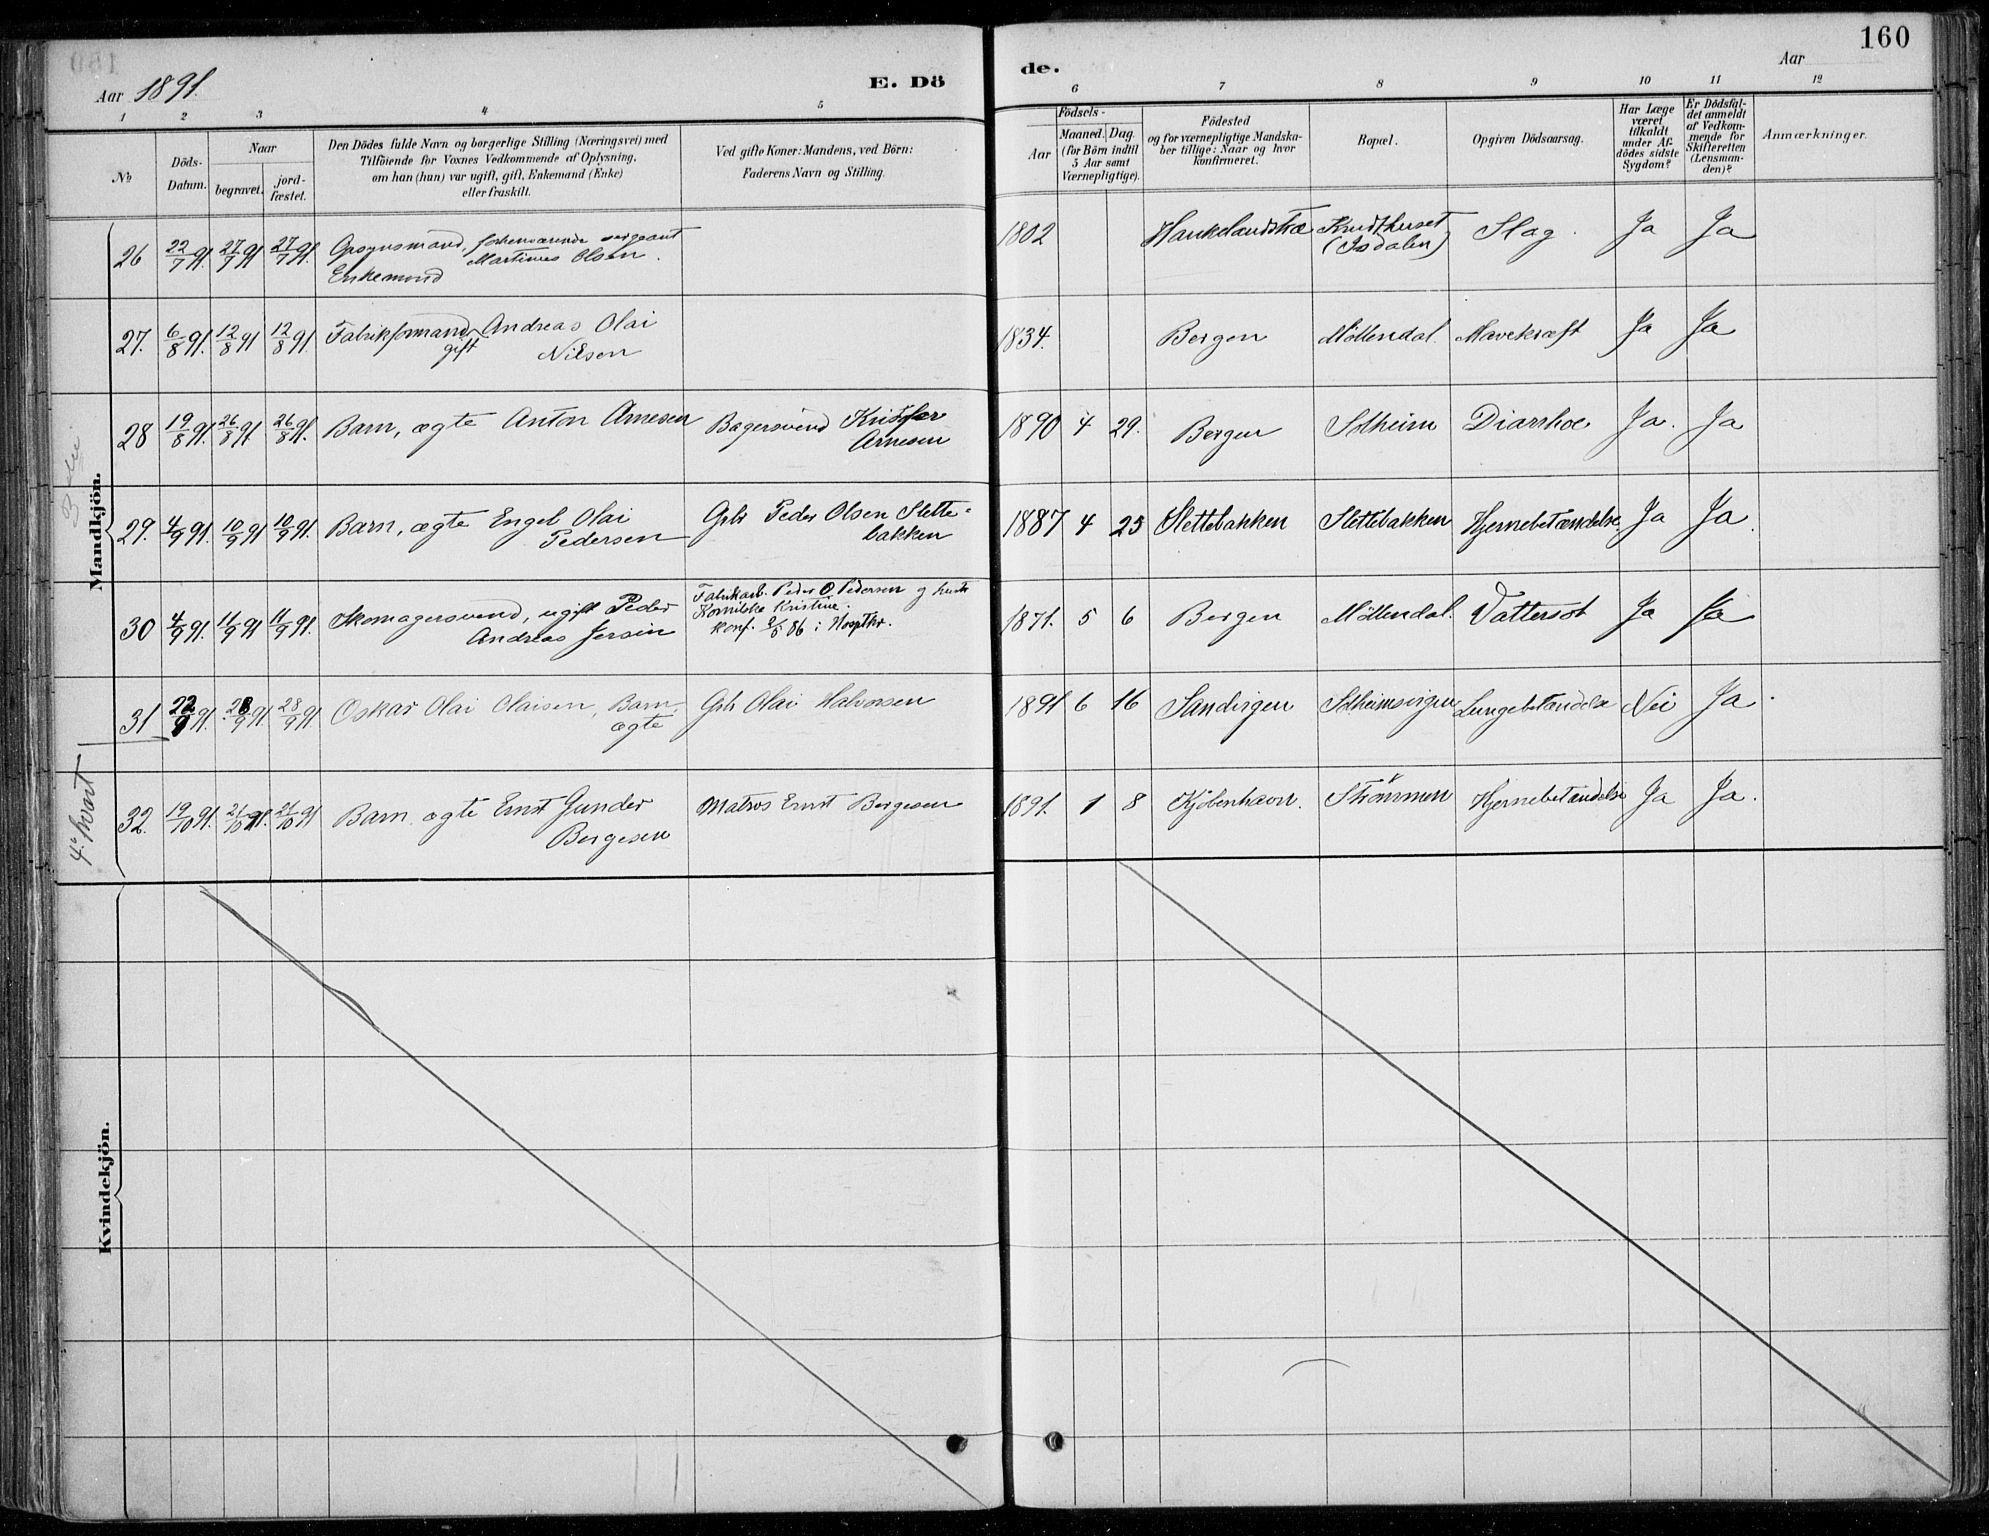 160
Aar 1891.
E. Dö
de.
Aar
1 2 3 4 5 6 7 8 9 10 11 12
No
Döds-Datum.
Naar
begravet.
jord-fæstet.
Den Dödes fulde Navn og borgerlige Stilling (Næringsvei) med
Tilföiende for Voxnes Vedkommende af Oplysning,
om han (hun) var ugift, gift, Enkemand (Enke)
eller fraskilt.
Ved gifte Koner: Mandens, ved Börn:
Faderens Navn og Stilling.
Födsels-
Aar
Maaned. Dag.
(for Börn indtil
5 Aar samt
Værnepligtige).
Födested
og for værnepligtige Mandska-
ber tillige: Naar og hvor
konfirmeret.
Bopæl.
Opgiven Dödsaarsag.
Har Læge
været
tilkaldt
under Af-
dödes sidste
Sygdom?
Er Dödsfal-
det anmeldt
af Vedkom-
mende for
Skifteretten
(Lensman-
den)?
Anmærkninger.
Mandkjön.
26 22/7 91. 27/7 91 27/7 91. Opsynsmand, forhenværende sergeant
Martinus Olsen.
Enkemand
1802 Haukelandstræ Krudthuset
(Isdalen) Slag. Ja Ja
27. 6/8 91. 12/8 91 12/8 91. Fabrikformand, Andreas Olai
gift Nilsen
1834. Bergen Möllendal. Mavekræft Ja Ja
28 19/8 91. 26/8 91 26/8 91. Barn, ægte Anton Arnesen Bagersvend Kristofer
Arnesen
1890 4 29. Bergen Solheim Diarrhoe Ja. Ja
29. 4/9 91. 10/9 91 10/9 91. Barn, ægte Engel Olai
Pedersen
Gbr Peder Olsen Slette-
bakken
1887 4 23 Slettebakken Slettebakken Hjernebetændelse Ja Ja.
30 4/9 91. 11/9 91 11/9 91. Skomagersvend, ugift Peder
Andreas Jersin
Fabrikarb. Peder O. Pedersen og hustr
Kornilke Kristine.
konf. 2/5 86 i Hospthr.
1871. 5 6 Bergen Möllendal. Vattersot Ja Ja
31 22/9 91. 28/9 91 28/9 91 Oskar Olai Olaisen, Barn,
ægte
Gbr Olai Halvorsen
1891 6 16 Sandvigen Solheimsvigen Lungebetændelse Nei Ja.
4de kvart
32. 19/10 91. 21/10 91. 21/10 91 Barn ægte Ernst Gunder
Bergesen
Matros Ernst Bergesen
1891. 1 8 Kjöbenhavn. Strömmen Hjernebetændelse Ja Ja.
Kvindekjön.